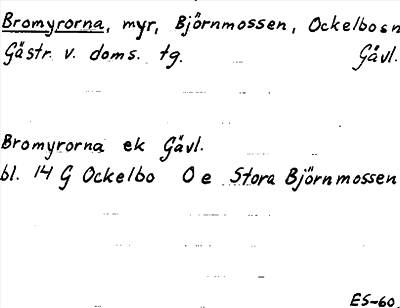 Bromyrorna, myr, Björnmossen, Ockelbo sn
Gästr. v. doms. tg. Gävl.
Bromyrorna ek Gävl.
bl. 14 G Ockelbo O e Stora Björnmossen
ES-60.